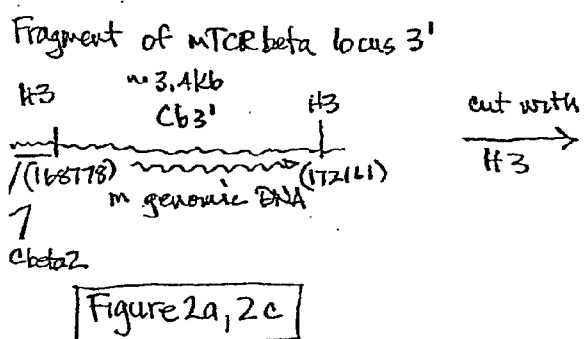 Fragment of mTCRbeta locus 3'
~ 3.4kb
H3 Cb3' H3 cut with
(168778) (172161) H3
m genomic DNA
Cbeta2
Figure 2a, 2c